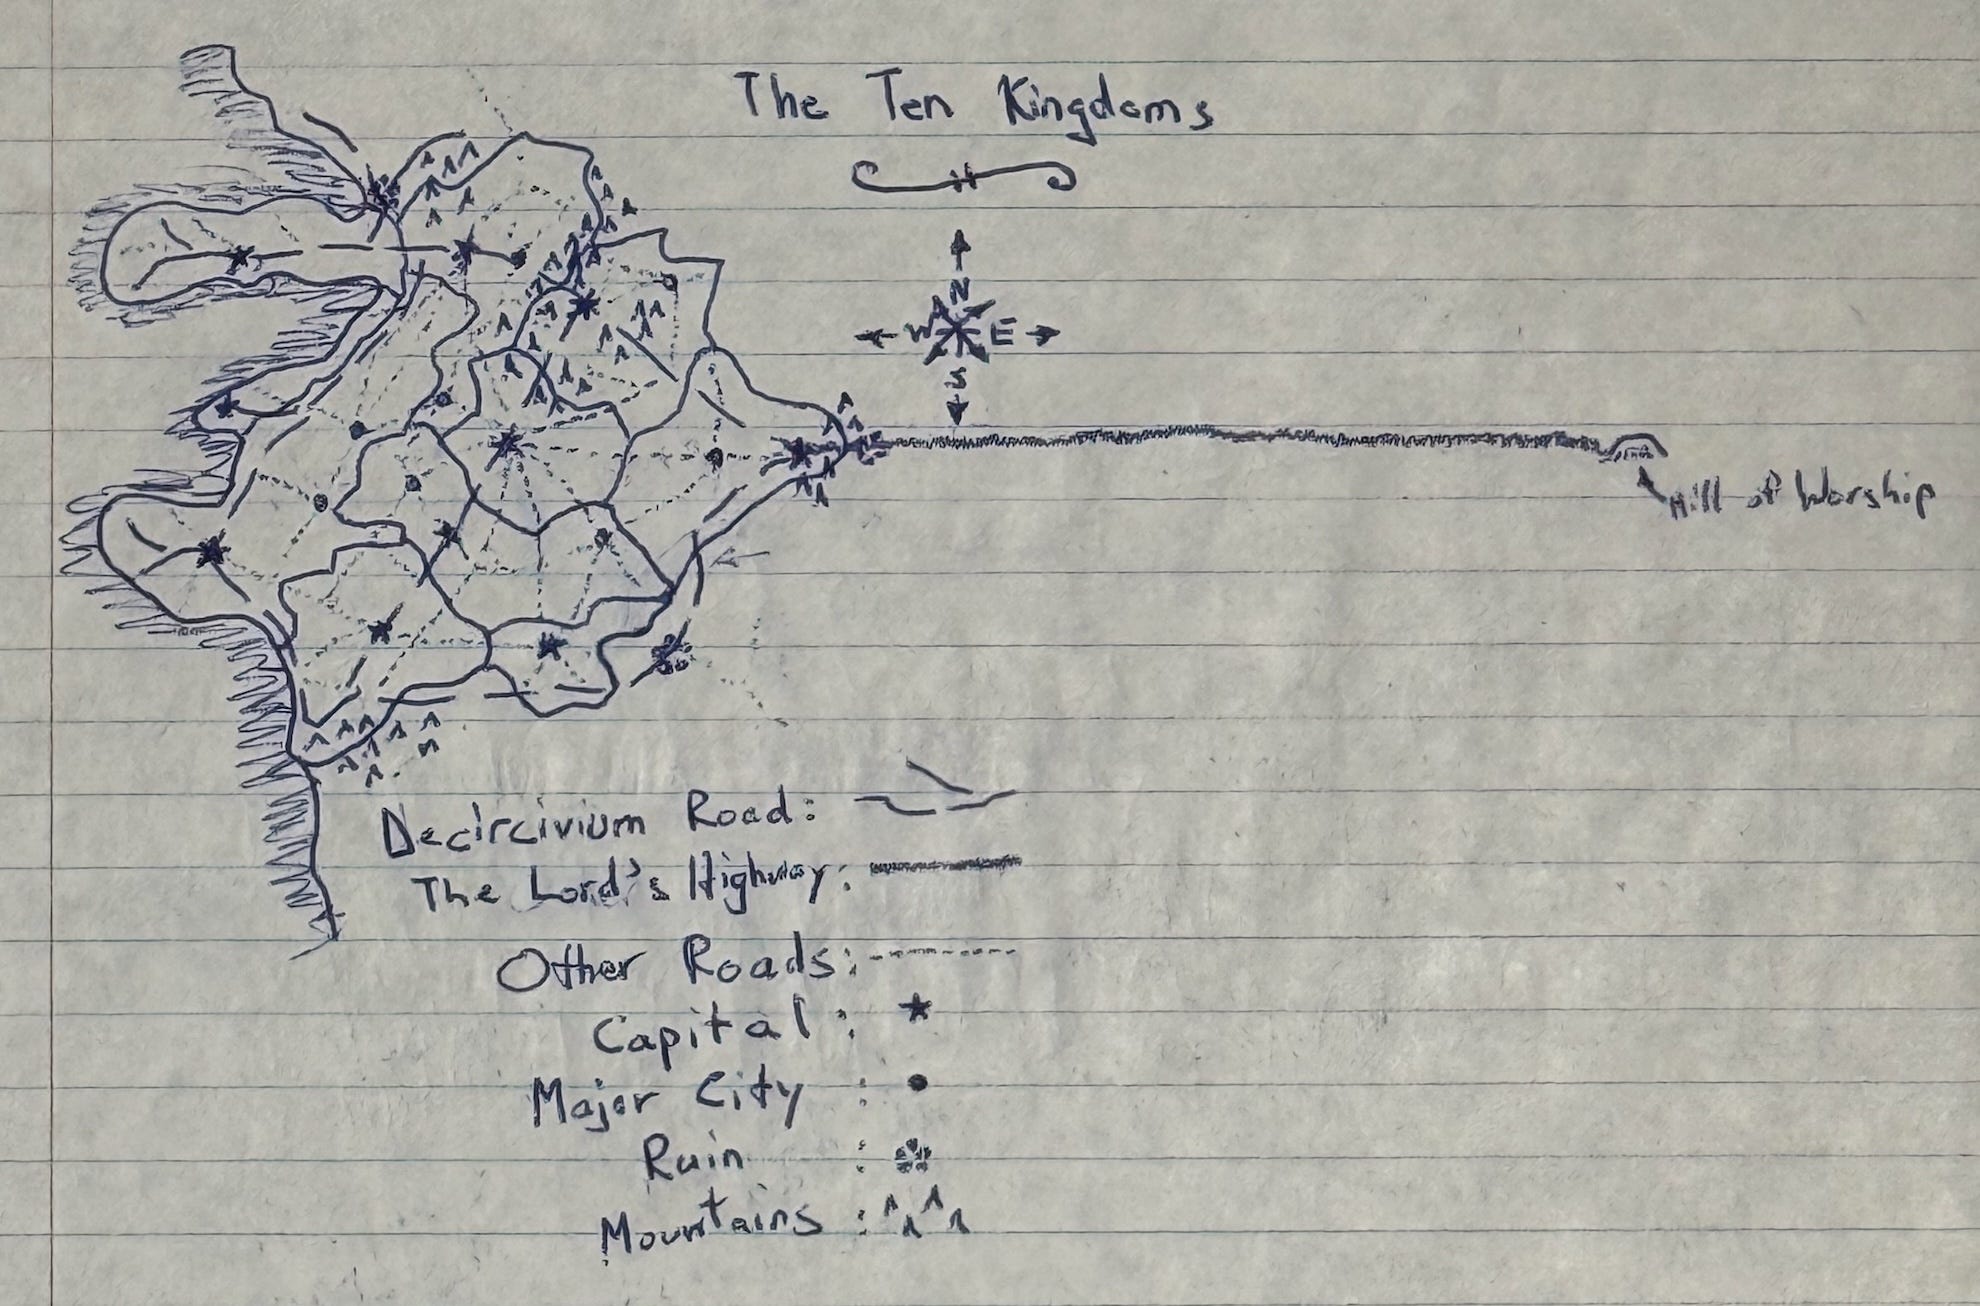 The Ten Kingdoms
N
W E
S
Hill of Worship
Decircivium Road:
The Lord's Highway:
Other Roads:
Capital:
Major City:
Ruin:
Mountains: